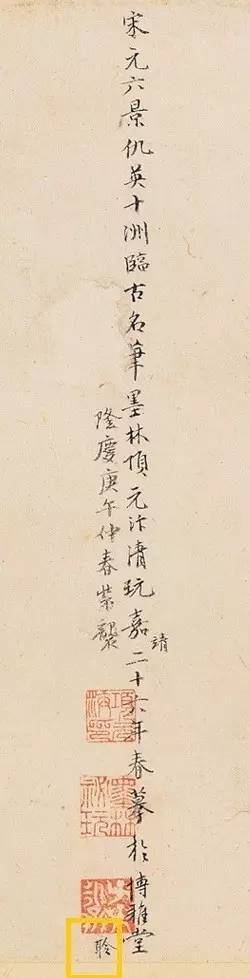 宋元六景仇英十洲臨古名筆墨林項元汴清玩嘉二十六年春摹於博雅堂
靖
隆慶庚午仲春裝襲
項元汴印
墨林祕玩
聆